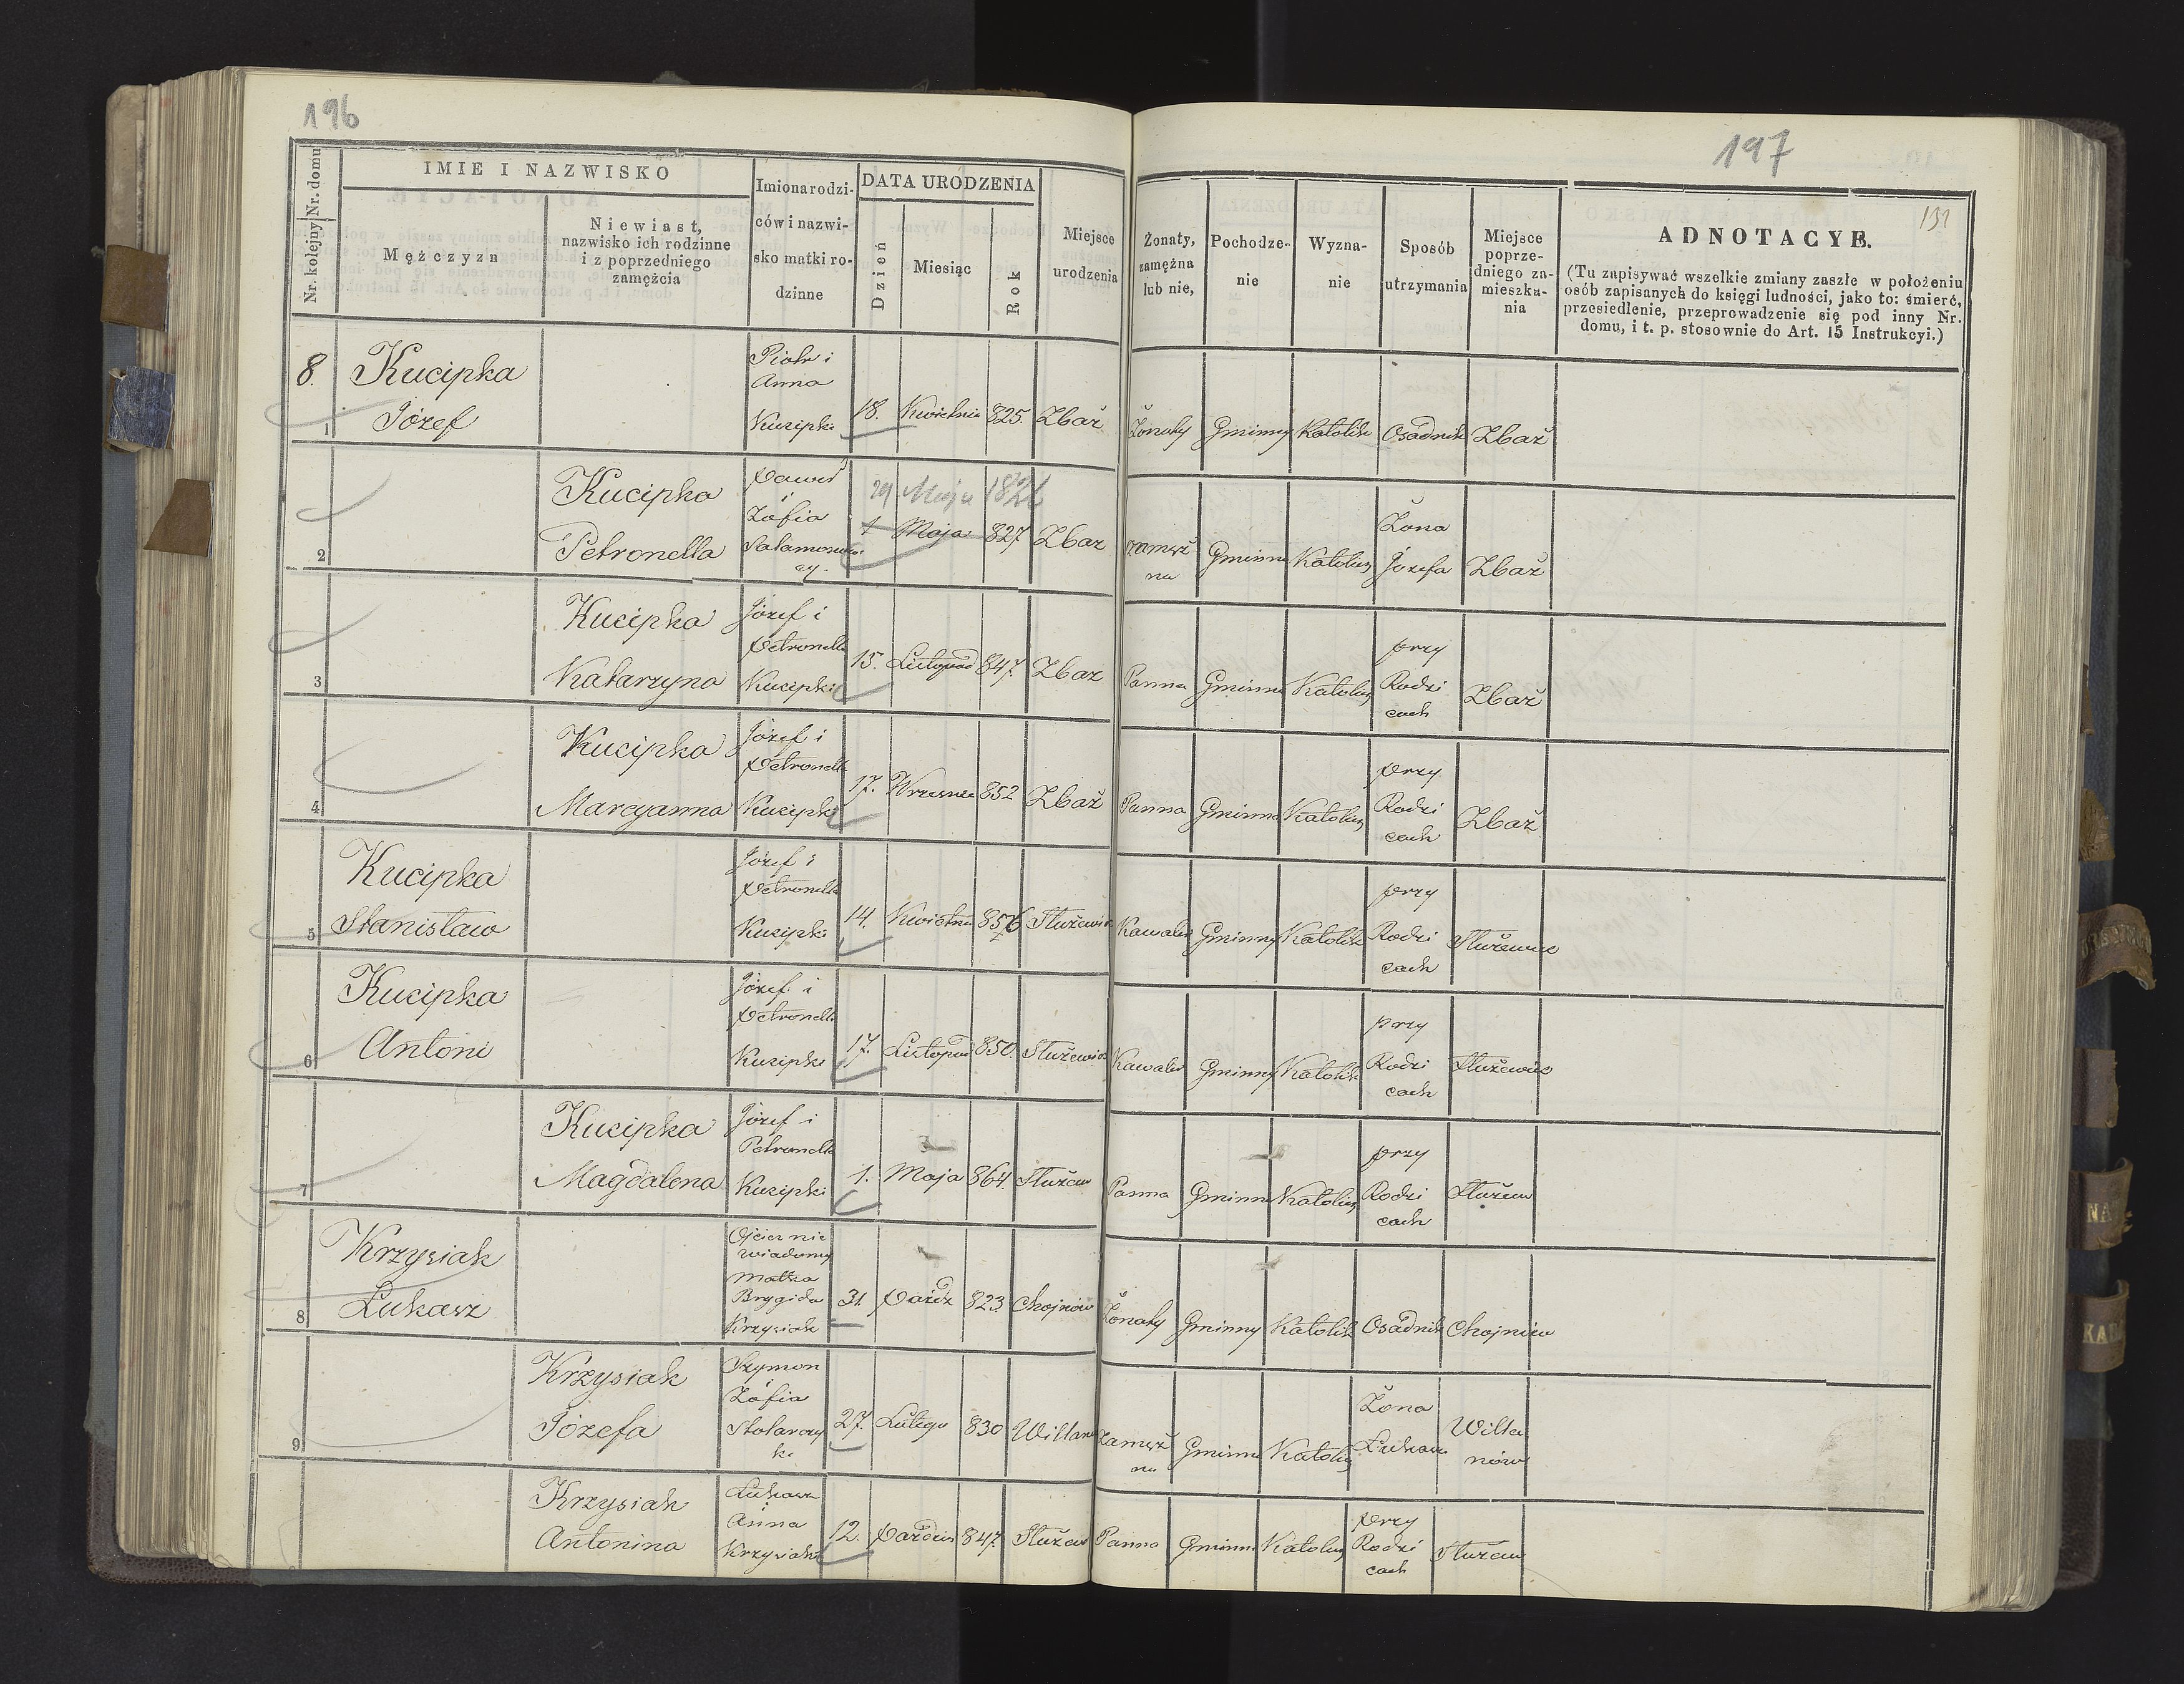 196
197
131
Nr. kolejny Nr. domu
IMIE I NAZWISKO
Mężczyzn
Niewiast,
nazwisko ich rodzinne
i z poprzedniego
zamężcia
Imiona rodzi-
ców i nazwi-
sko matki ro-
dzinne
DATA URODZENIA
Dzień
Miesiąc
Rok
Miejsce
urodzenia
Żonaty,
zamężna
lub nie,
Pochodze-
nie
Wyzna-
nie
Sposób
utrzymania
Miejsce
poprze-
dniego za-
mieszka-
nia
ADNOTACYE.
(Tu zapisywać wszelkie zmiany zaszłe w położeniu
osób zapisanych do księgi ludności, jako to: śmierć,
przesiedlenie, przeprowadzenie się pod inny Nr.
domu, i t. p. stosownie do Art. 15 Instrukcyi.)
8.
1
Kucipka
Józef
Piotr i
Anna
Kucipki
18. Kwietnia 825. Zbaż
Żonaty Gminny Katolik Osadnik Zbaż
2
Kucipka
Petronella
Dawid
i
Zofia
29 Maja 1826
1 Maja 827. Zbaż
zamęż
na
Gminna Katolicz
Żona
Józefa
Zbaż
3
Kucipka
Katarzyna
Józef i
Petronella
Kucipki
15. Listopad 847. Zbaż
Panna Gminna Katolicz
przy
Rodzi
cach
Zbaż
4
Kucipka
Maryanna
Józef i
Petronella
Kucipki
17. 852 Zbaż
Panna Gminna Katolicz
przy
Rodzi
cach
Zbaż
5
Kucipka
Stanisław
Józef i
Petronella
Kucipki
14. Kwietnia Służewie
Kawaler Gminny Katolik
przy
Rodzi
cach
Służewie
6
Kucipka
Antoni
Józef i
Petronella
Kucipki
17. Listopad 850. Służewie
Kawaler Gminny Katolik
przy
Rodzi
cach
Służewie
7
Kucipka
Magdalena
Józef i
Petronella
Kucipki
1. Maja 864. Służew
Panna Gminna Katolicz
przy
Rodzi
cach
Służew
8
Krzysiak
Łukasz
Ojciec nie
wiadomy
Matka
Brygida
Krzysiak
31. Paźdz 823. Chojnów
Żonaty Gminny Katolik Osadnik Chojnów
9
Krzysiak
Józefa
Szymon
i
Zofia
Stolarczy
ki
27. Lutego 830 Willanów
zamęż
na
Gminna Katolicz
Żona
Łukasza
Willa
nów
Krzysiak
Antonina
Łukasz
i
Anna
Krzysiaki
12. Paździer 847. Służew
Panna Gminna Katolicz
przy
Rodzi
cach
Służew